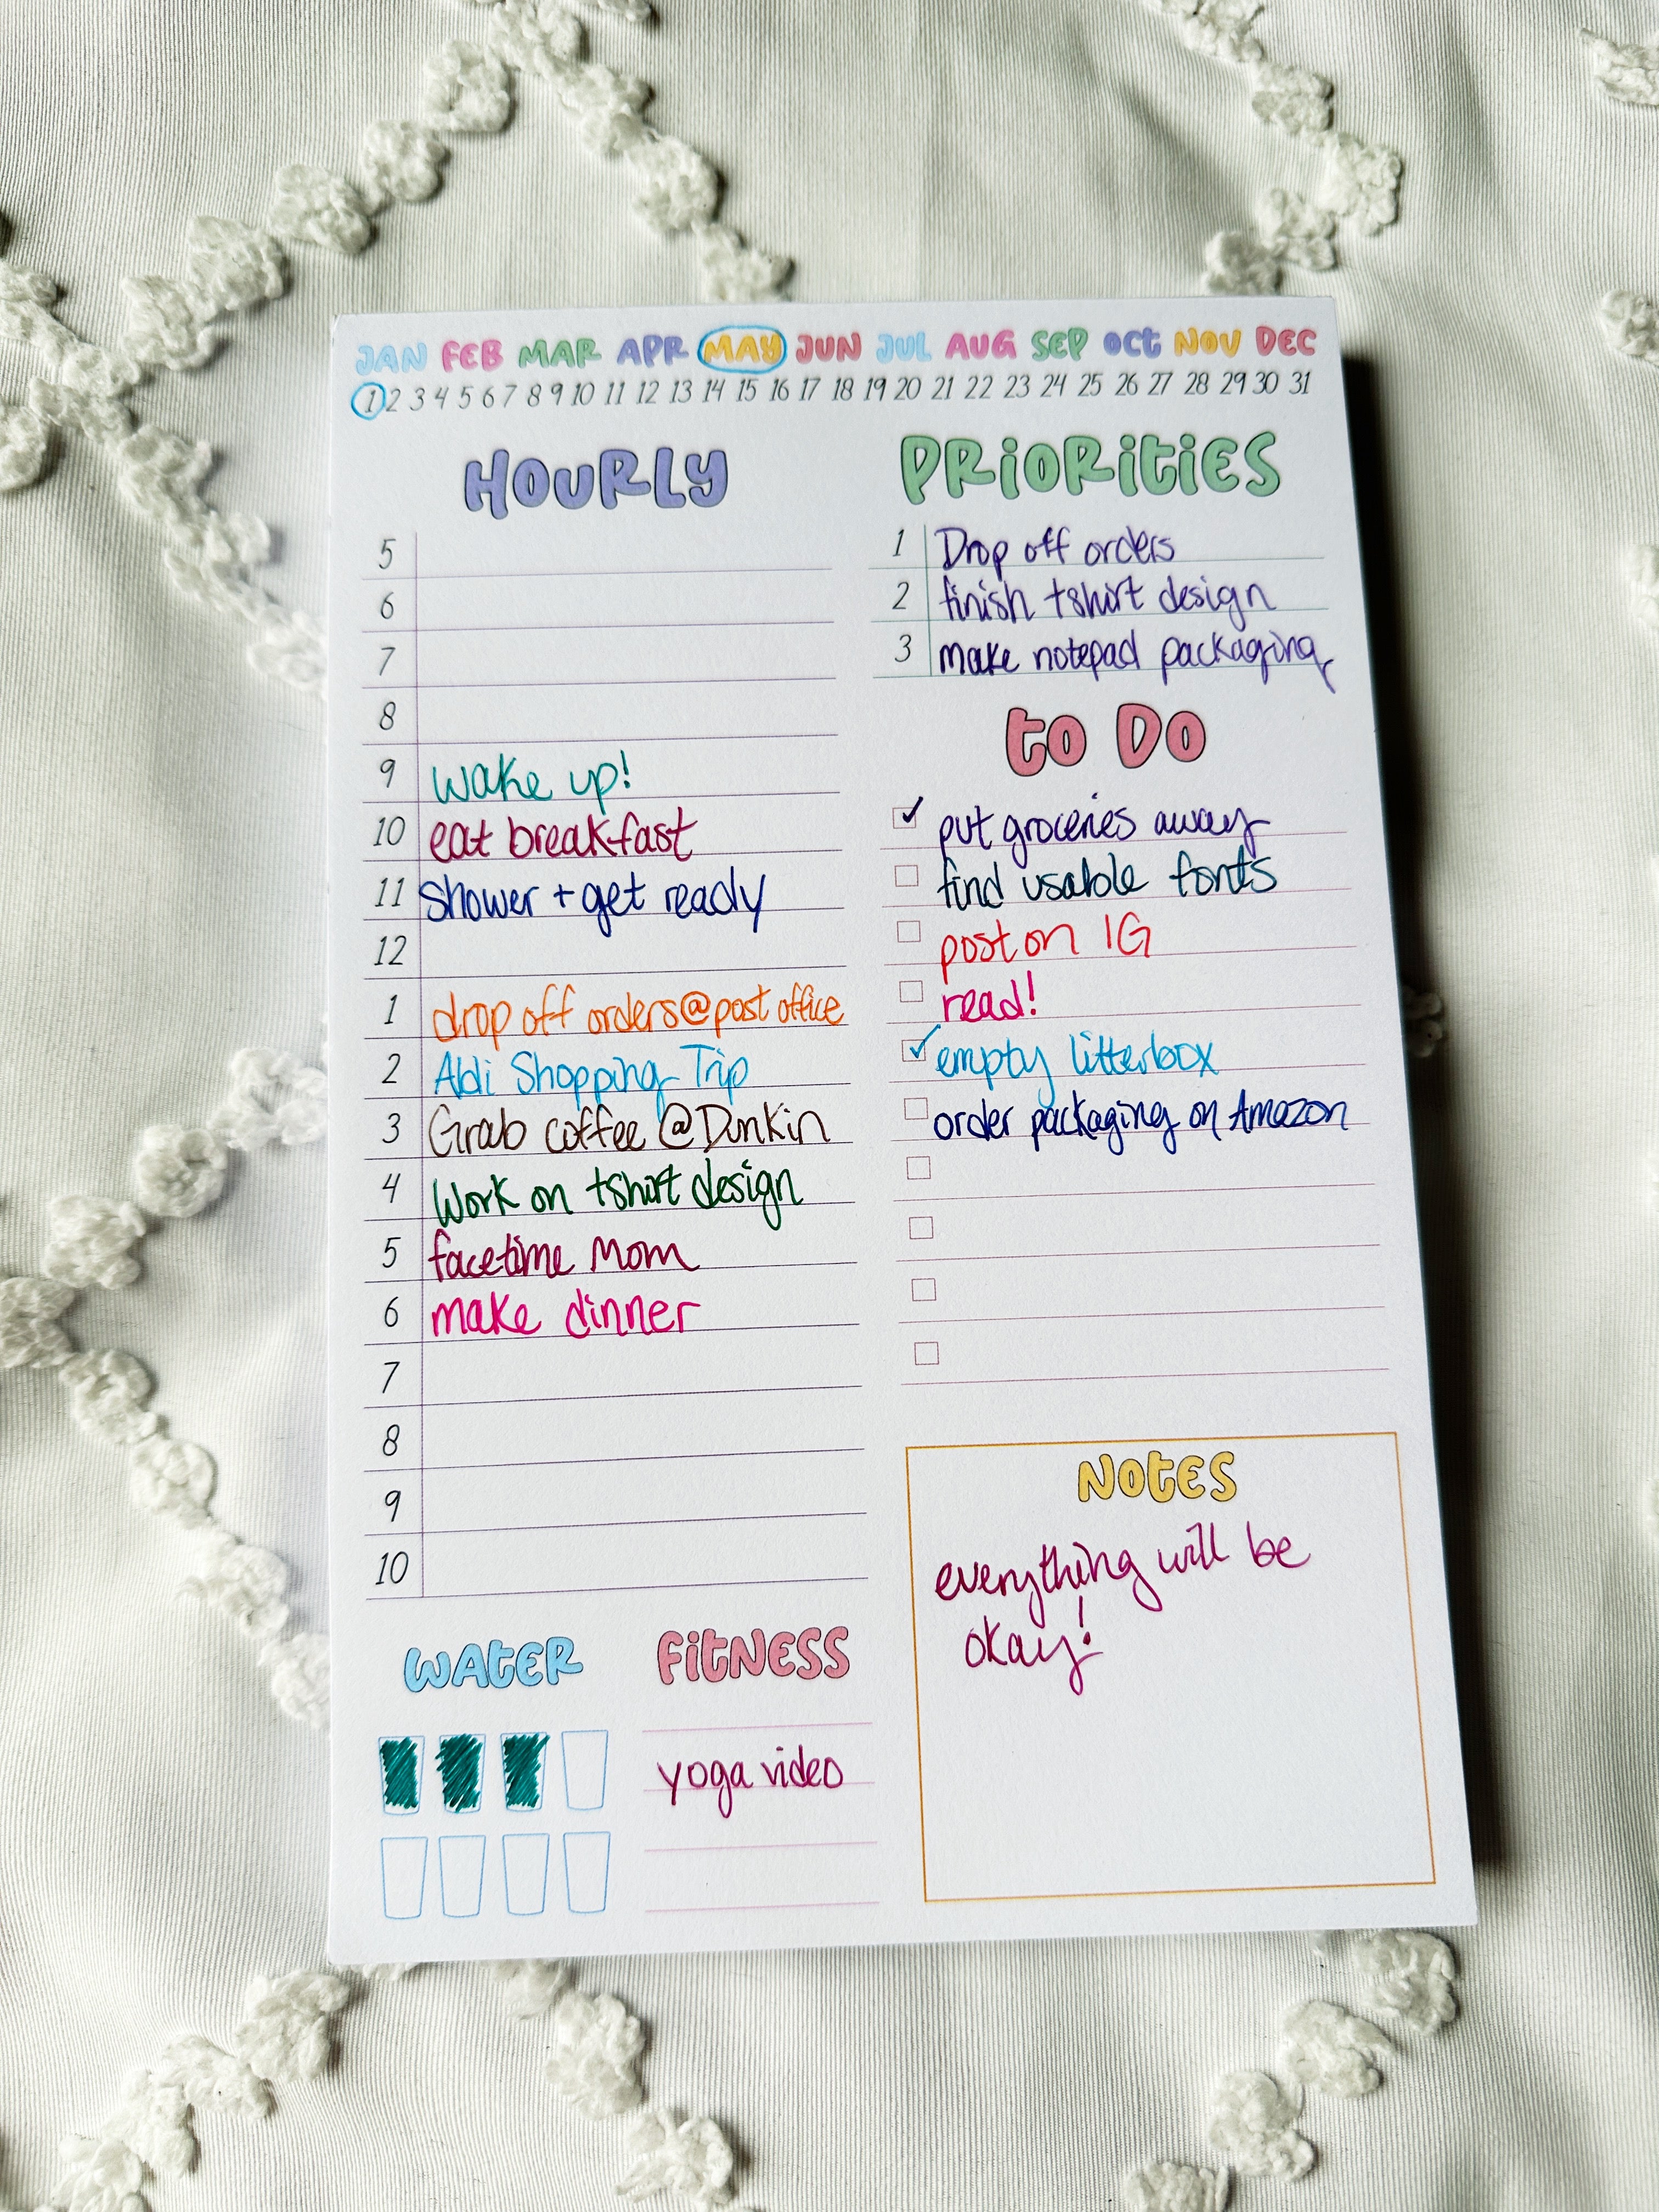 JAN FEB MAR APR MAY JUN JUL AUG SEP OCT NOV DEC
1 2 3 4 5 6 7 8 9 10 11 12 13 14 15 16 17 18 19 20 21 22 23 24 25 26 27 28 29 30 31
HOURLY
5
6
7
8
9 wake up!
10 eat breakfast
11 shower + get ready
12
1 drop off orders@post office
2 Aldi Shopping Trip
3 Grab coffee @Dunkin
4 Work on tshirt design
5 facetime Mom
6 make dinner
7
8
9
10
PRIORITIES
1 Drop off orders
2 finish tshirt design
3 make notepad packaging
TO DO
put groceries away
find usable fonts
post on IG
read!
empty litterbox
order packaging on Amazon
WATER
FITNESS
yoga video
NOTES
everything will be
okay!